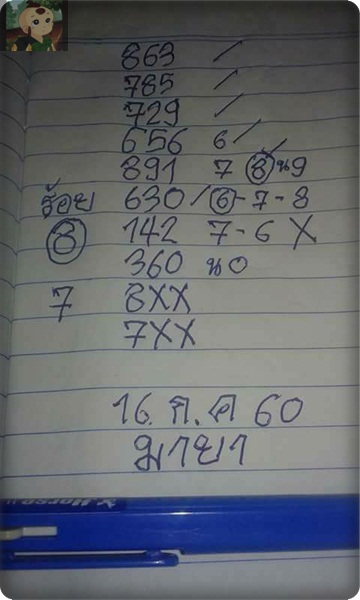 863 ✓
785 ✓
729 ✓
656 6 ✓
891 7 8 ✓ น9
ร้อย 630 ✓ 6 - 7 - 8
8 142 7 - 6 X
360 น0
7 8XX
7XX
16 ก.ค 60
มายา